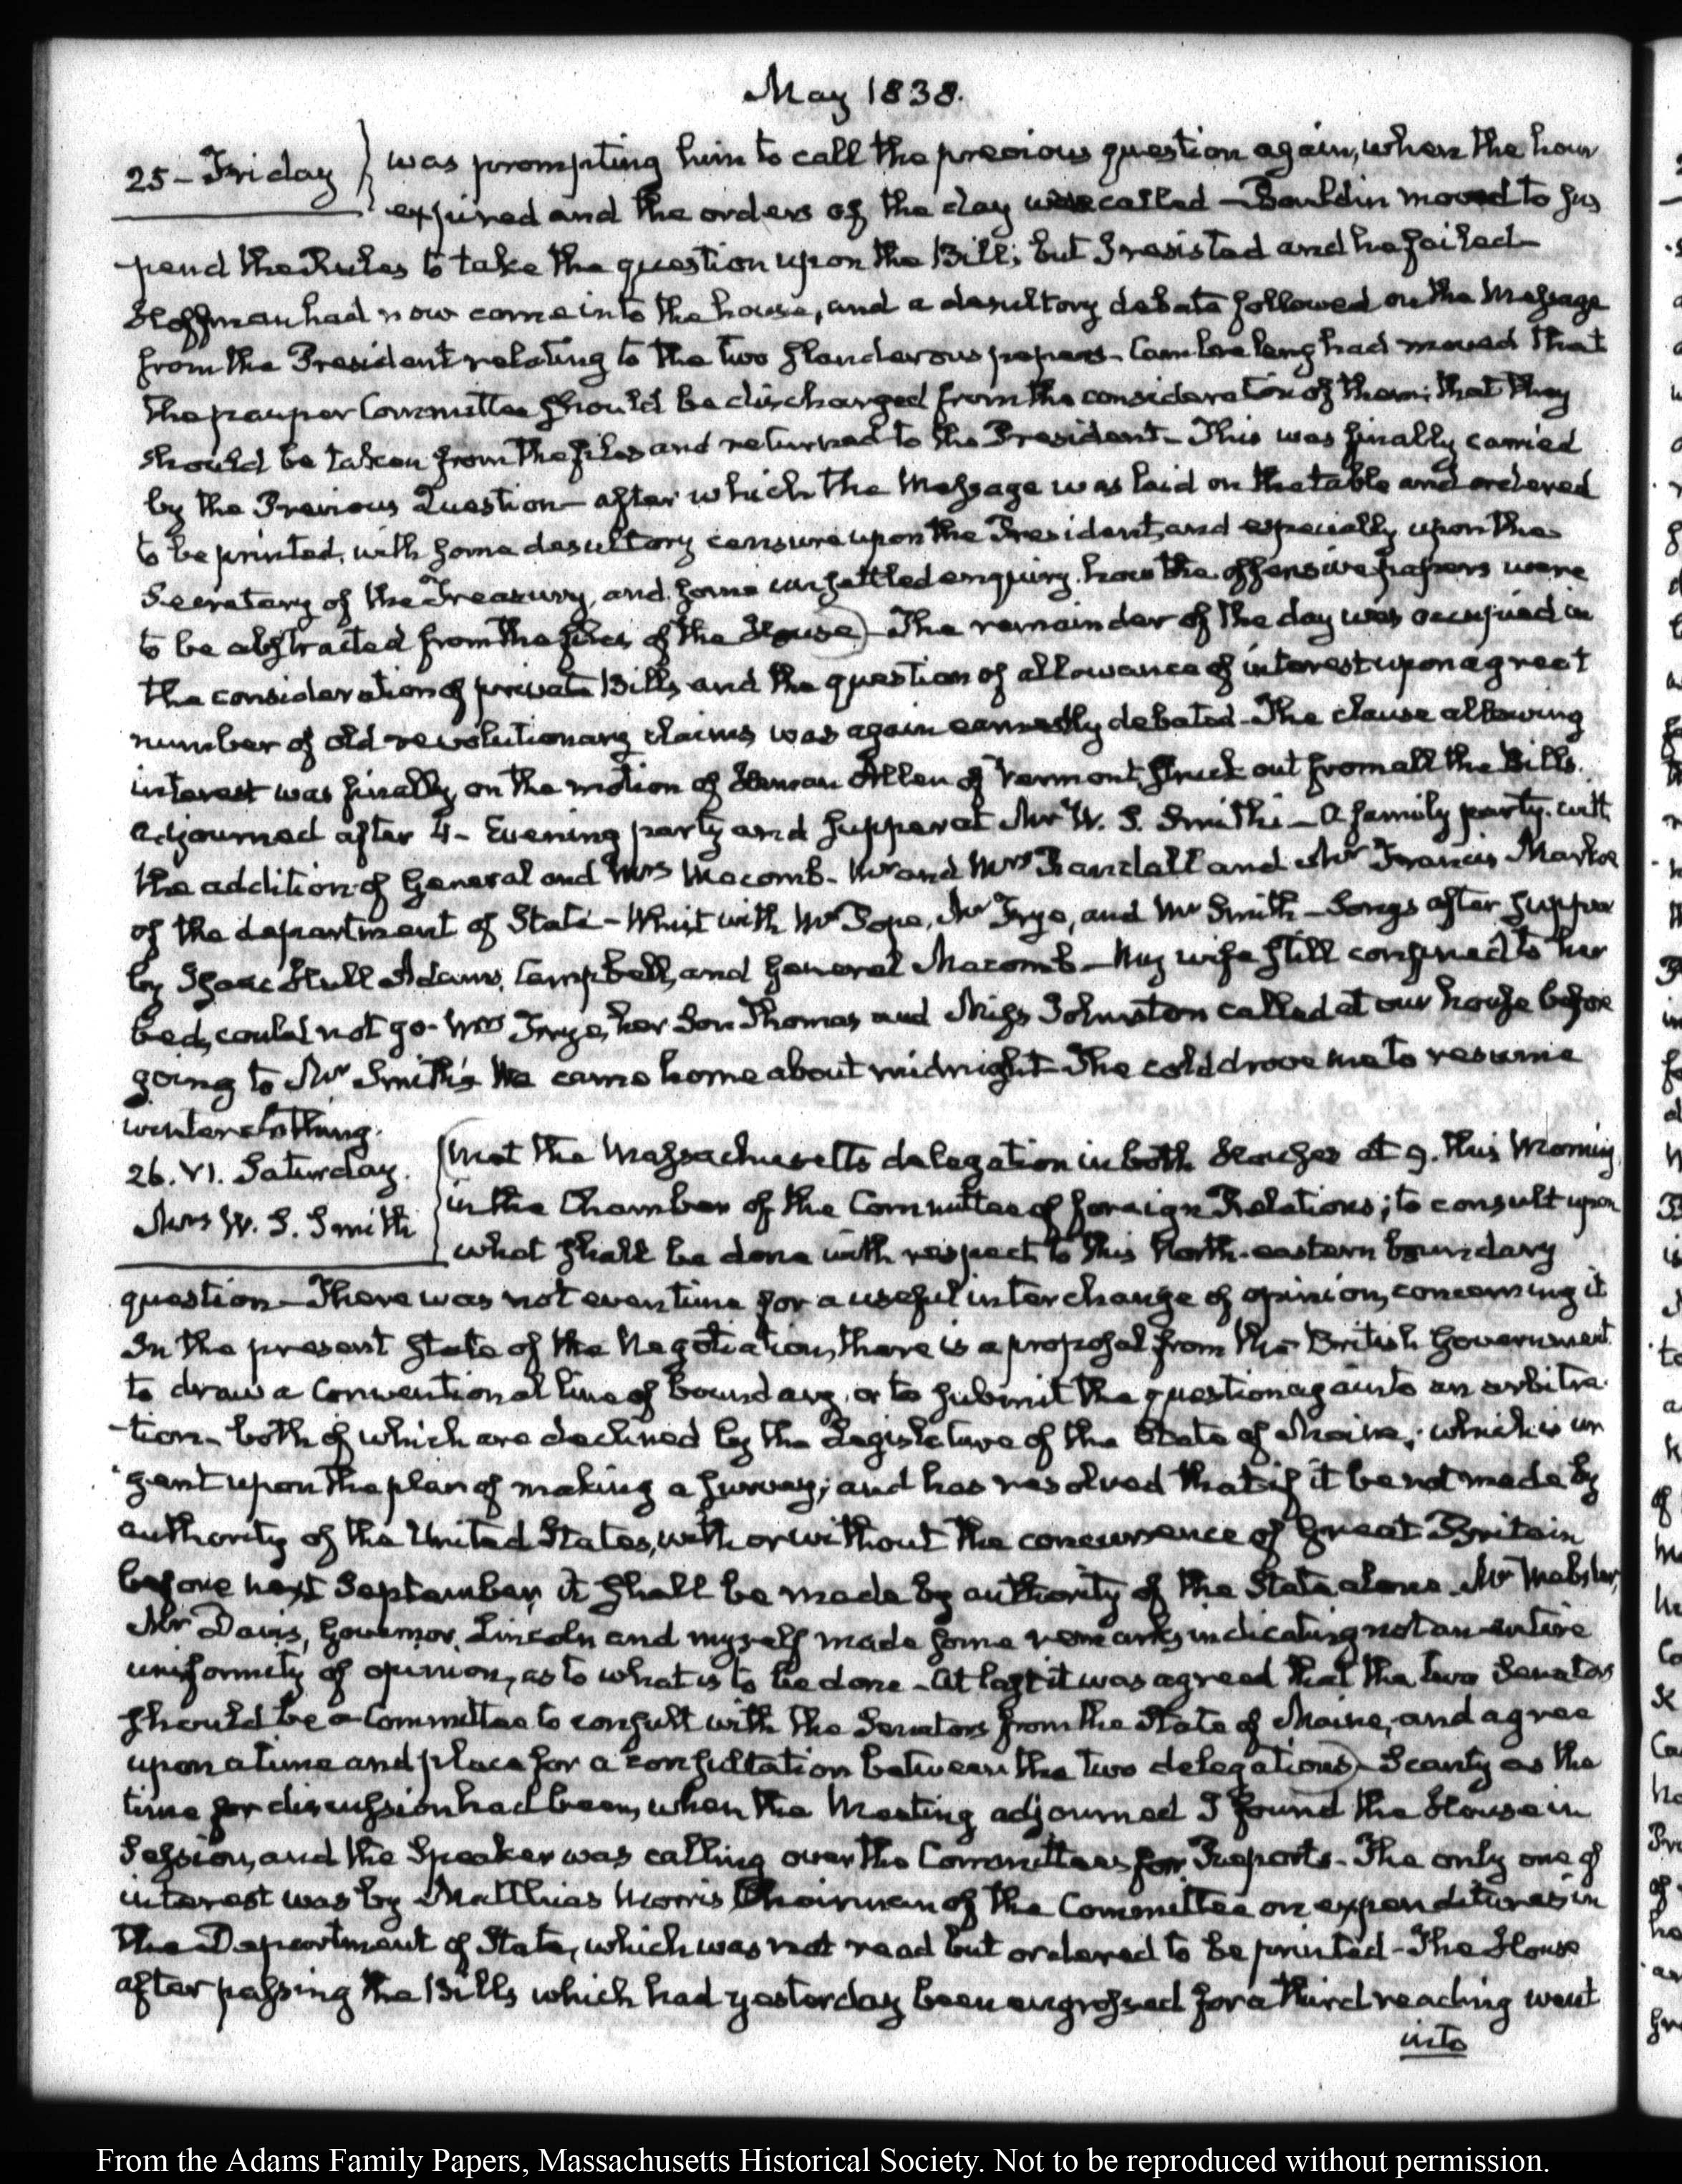 May 1838.
25 – Friday } was prompting him to call the previous question again, when the hour
expired and the orders of the day were called – Bouldin moved to sus
pend the Rules to take the question upon the Bill; but I resisted and he failed –
Hoffman had now come into the house, and a desultory debate followed on the Message
from the President relating to the two slanderous papers – Cambreleng had moved that
the pauper Committee should be discharged from the consideration of them; that they
should be taken from the files and returned to the President – This was finally carried
by the Previous Question – after which the Message was laid on the table and ordered
to be printed, with some desultory censure upon the President, and especially upon the
Secretary of the Treasury, and some unsettled enquiry how the offensive papers were
to be abstracted from the files of the House) – The remainder of the day was occupied in
the consideration of private Bills, and the question of allowance of interest upon a great
number of old revolutionary claims was again earnestly debated – The clause allowing
interest was finally, on the motion of Heman Allen of Vermont, struck out from all the Bills.
Adjourned after 4 – Evening party and supper at Mr W. S. Smith's – A family party, with
the addition of General and Mrs Macomb – Mr and Mrs Randall and Mr Francis Markoe
of the department of State – Whist with Mr Pope, Mr Frye, and Mr Smith – Songs after supper
by Isaac Hull Adams, Campbell, and General Macomb – My wife still confined to her
bed, could not go – Mrs Frye, her Son Thomas and Miss Johnston called at our house before
going to Mr Smith's We came home about midnight – The cold drove me to resume
winter clothing.
26. VI. Saturday. (Met the Massachusetts delegation in both Houses at 9. this Morning
in the Chamber of the Committee of foreign Relations; to consult upon
Mrs W. S. Smith
what shall be done with respect to this North-eastern boundary
question – There was not even time for a useful interchange of opinion, concerning it
In the present state of the Negotiation, there is a proposal from the British Government
to draw a Conventional line of boundary, or to submit the question again to an arbitra-
-tion – both of which are declined by the Legislature of the State of Maine; which is ur
gent upon the plan of making a survey; and has resolved that if it be not made by
authority of the United States, with or without the concurrence of Great Britain
before next September, it shall be made by authority of the State alone. Mr Webster,
Mr Davis, Governor Lincoln and myself made some remarks, indicating not an entire
uniformity of opinion, as to what is to be done – At last it was agreed that the two Senators
should be a Committee to consult with the Senators from the State of Maine, and agree
upon a time and place for a consultation between the two delegations) – Scanty as the
time for discussion had been, when the Meeting adjourned I found the House in
Session, and the Speaker was calling over the Committees for Reports – The only one of
interest was by Matthias Morris Chairman of the Committee on expenditures in
the Department of State, which was not read but ordered to be printed – The House
after passing the Bills which had yesterday been engrossed for a third reading went
into
From the Adams Family Papers, Massachusetts Historical Society. Not to be reproduced without permission.